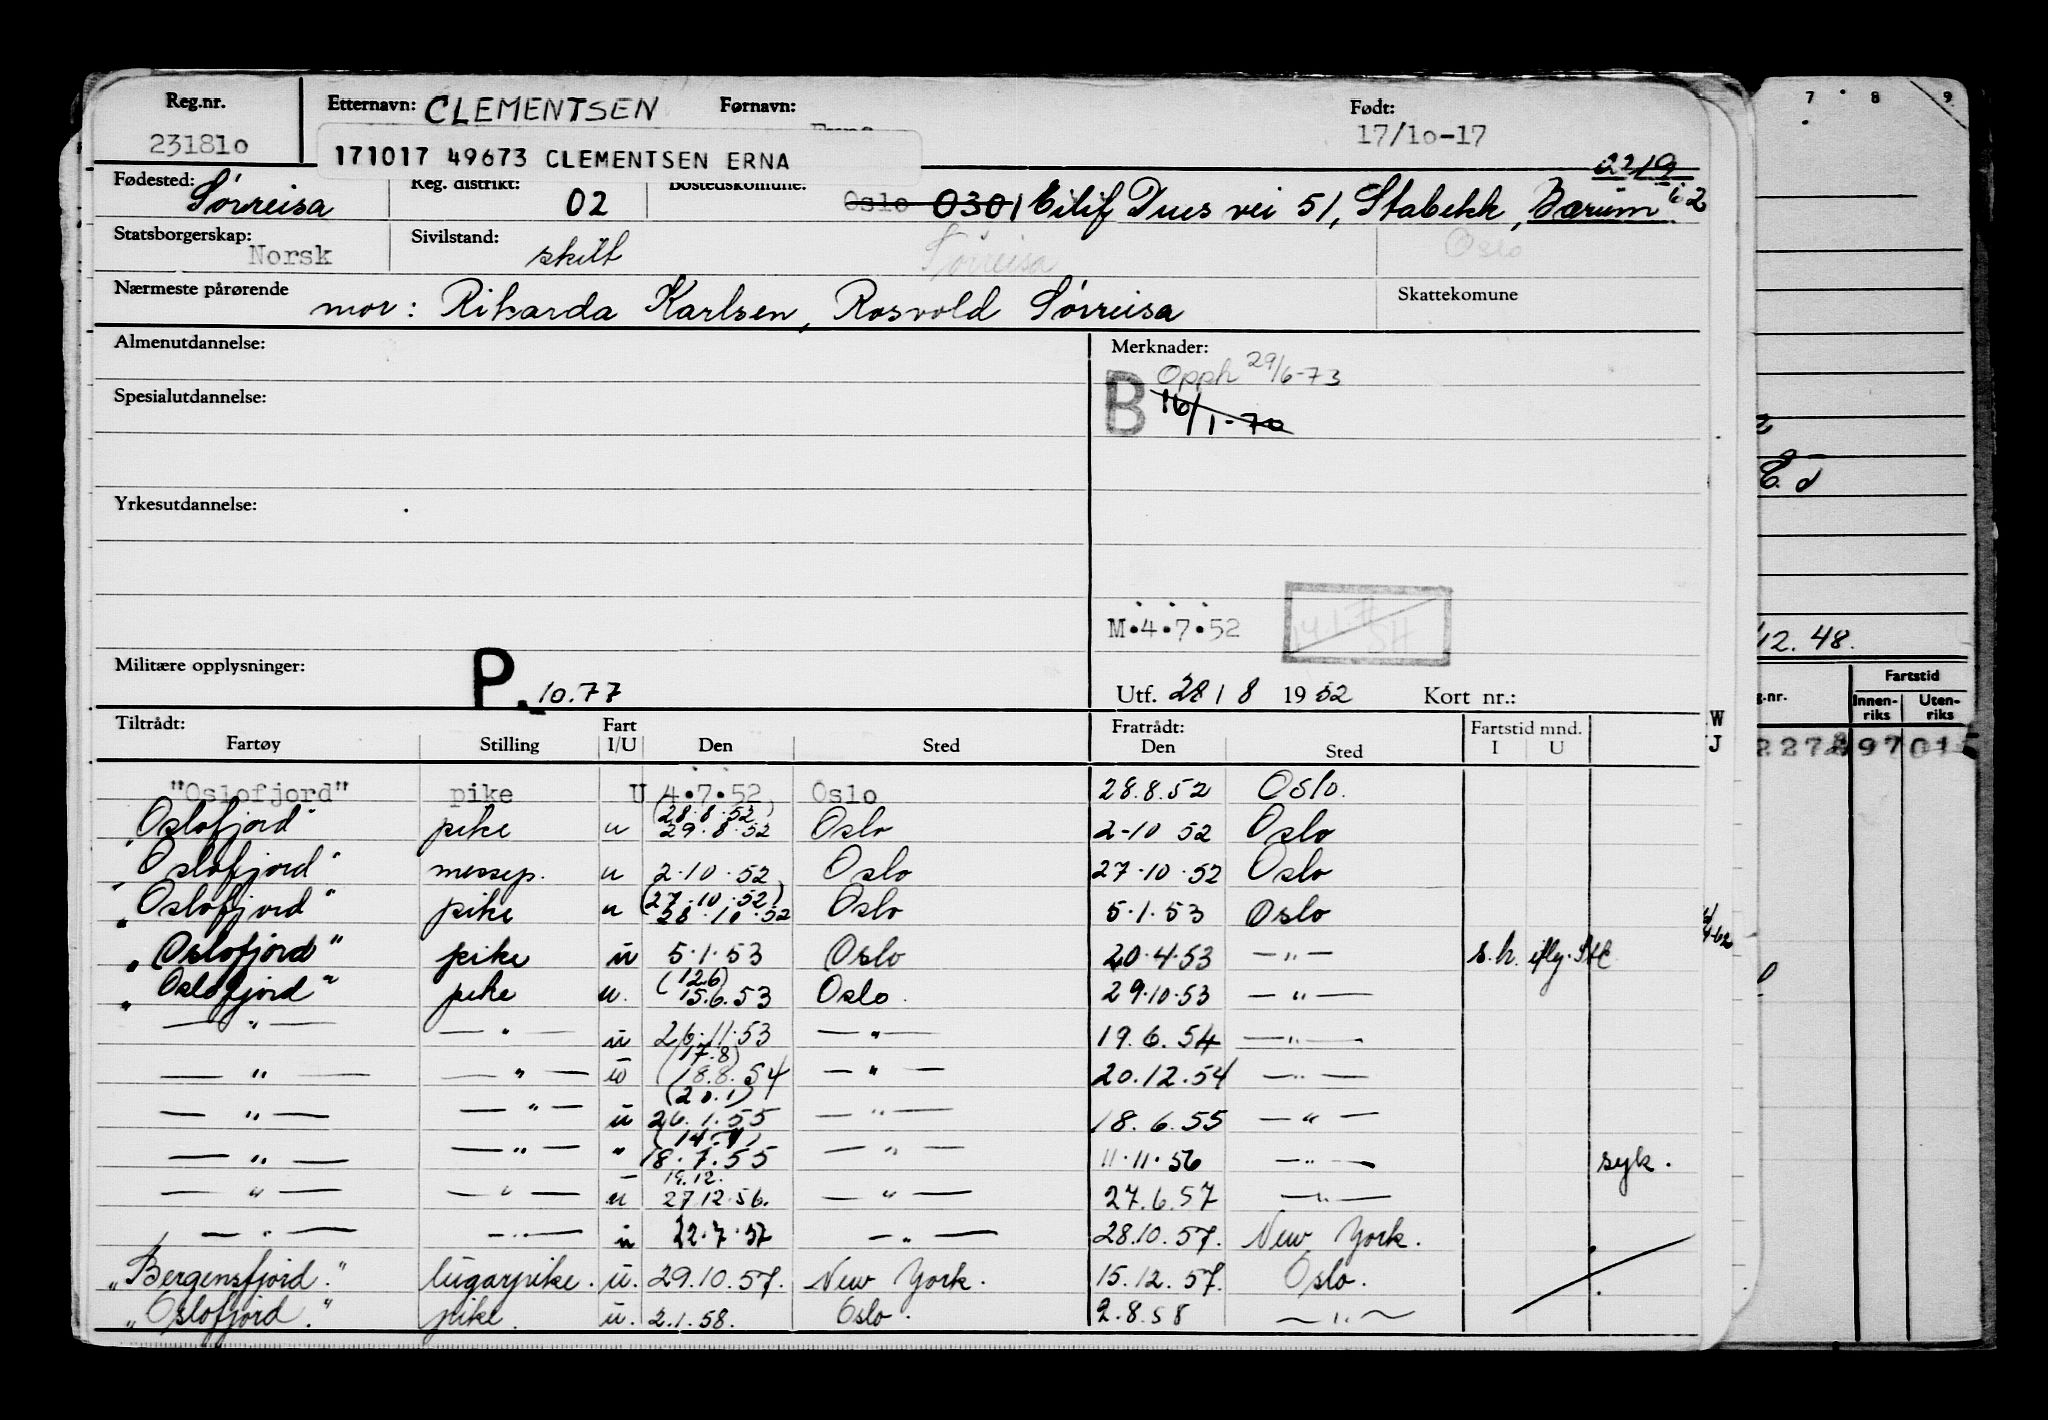 Reg.nr. Etternavn: CLEMENTSEN Fornavn: Født:
231810 17/10-17
171017 49673 CLEMENTSEN ERNA
0219
Fødested: Sørreisa Reg. distrikt: 02 Bostedskomune: Oslo 0301 Eilif Dues vei 51, Stabekk, Bærum
Statsborgerskap: Norsk Sivilstand: skilt Sørreisa Oslo
Nærmeste pårørende mor: Rikarda Karlsen, Rosvold Sørreisa Skattekomune
Almenutdannelse: Merknader:
B Opph 29/6-73
Spesialutdannelse: 16/1-70
Yrkesutdannelse:
M.4.7.52
Militære opplysninger: P. 10.77 Utf. 28/8 1952 Kort nr.:
Tiltrådt: Fart Fratrådt: Fartstid mnd.
Fartøy Stilling I/U Den Sted Den Sted I U
"Oslofjord" pike U 4.7.52 Oslo 28.8.52 Oslo.
(28.8.52)
"Oslofjord" pike u 29.8.52 Oslo 2-10 52 Oslo
"Oslofjord" messep. u 2.10.52 Oslo 27.10.52 Oslo
(27.10.52)
"Oslofjord" pike u 28.10.52 Oslo 5.1.53 Oslo
"Oslofjord" pike u 5.1.53 Oslo 20.4.53 — " — s.h.
(12.6)
"Oslofjord" pike u. 15.6.53 Oslo. 29.10.53 — " —
— " — — " — u 26.11.53 — " — 19.6.54 — " —
(17.8)
— " — — " — u 18.8.54 — " — 20.12.54 — " —
(20.1)
— " — — " — u 26.1.55 — " — 18.6.55 — " —
— " — — " — " 18.7.55 — " — 11.11.56 — " — syk.
19.12.
— " — — " — u 27.12.56. — " — 27.6.57 — " —
— " — — " — u 22.7.57 — " — 28.10.57. New York.
"Bergensfjord." lugarpike. u. 29.10.57. New York. 15.12.57. Oslo.
"Oslofjord." pike. u. 2.1.58. Oslo. 2.8.58 — " —
7 8 9
12.48.
Fartstid
g.nr. Innen-riks Uten-riks
W
J